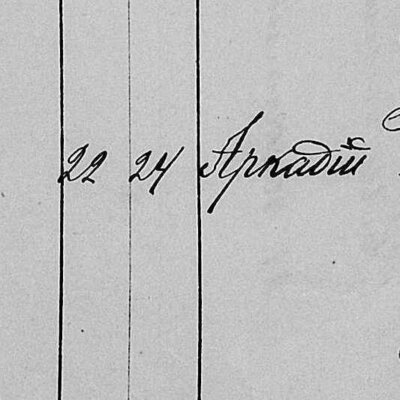 22 24 Аркадій